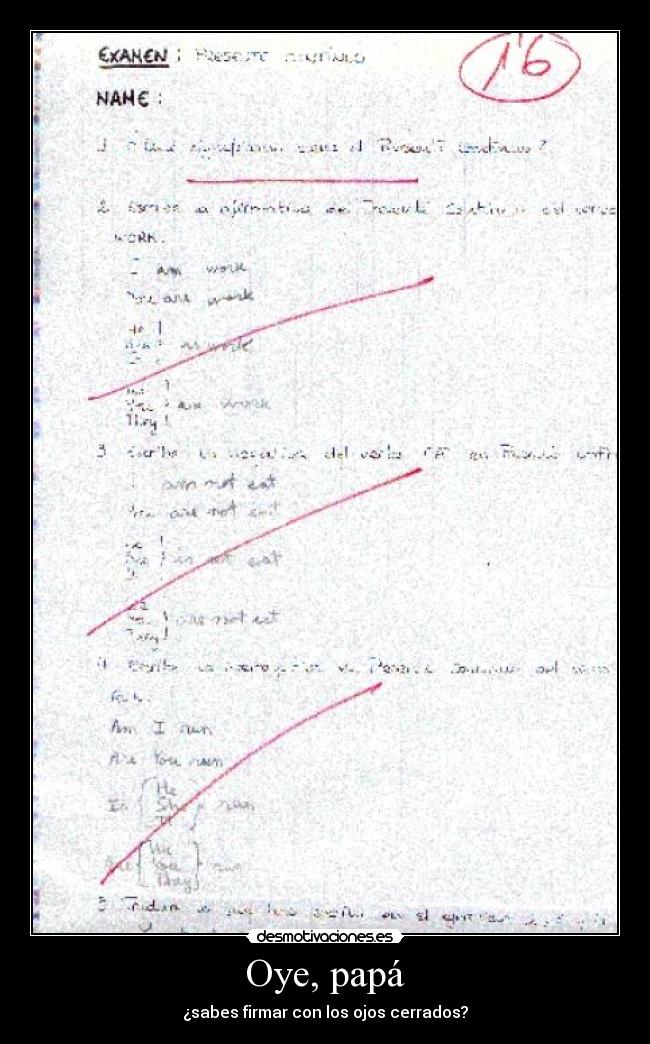 EXAMEN: PRESENTE CONTÍNUO
1'6
NAME:
1. el Present Continuo?
2. Escribe la afirmativa del Presente Continuo del verbo
WORK.
I am work
You are work
He
She is work
It
We
You are work
They
3. Escribe la negativa del verbo EAT en Presente
I am not eat
You are not eat
He
She is not eat
It
We
You are not eat
They
4. Escribe la interrogativa del Presente Continuo del verbo
RUN.
Am I run
Are You run
Is He
She run
It
Are We
You run
They
5. que has escrito en el ejercicio
desmotivaciones.es
Oye, papá
¿sabes firmar con los ojos cerrados?